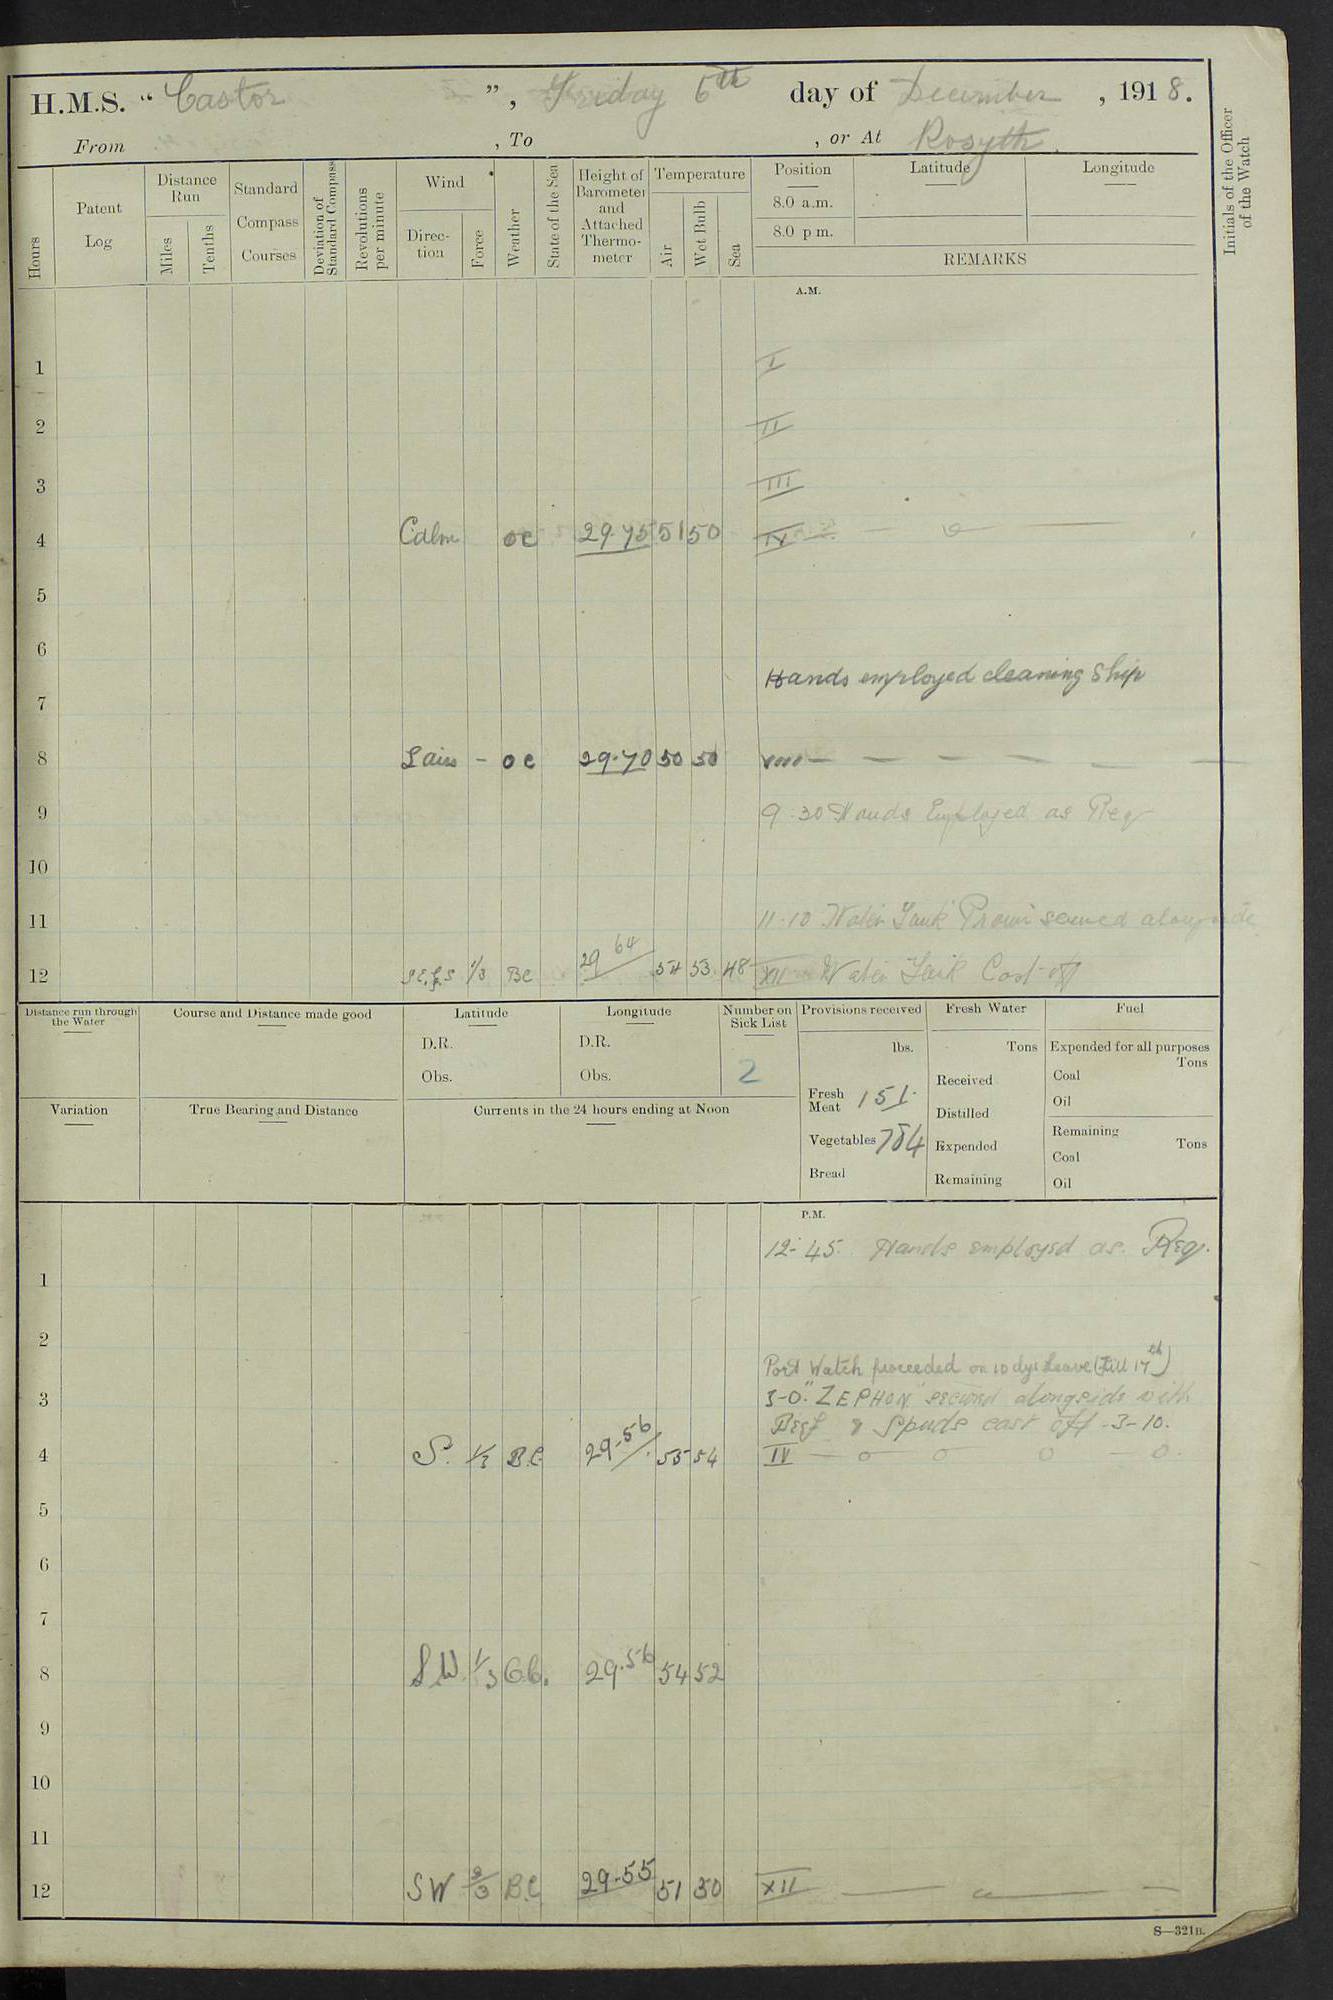 H.M.S. “ Castor ”, Friday 6th day of December, 1918.
From , To , or At Rosyth.
Hours
Patent Log
Distance Run
Miles
Tenths
Standard Compass Courses
Deviation of Standard Compass
Revolutions per minute
Wind
Direc-tion
Force
Weather
State of the Sea
Height of Barometer and Attached Thermo-meter
Temperature
Air
Wet Bulb
Sea
Position
8.0 a.m.
8.0 p.m.
Latitude
Longitude
REMARKS
Initials of the Officer of the Watch
A.M.
1 I
2 II
3 III
4 Calm oc 29.75 51 50 IV
5
6
Hands employed cleaning Ship
7
8 - oc 29.70 50 50 VIII
9 9.30 Hands Employed as Req
10
11 11.10 Water Tank secured alongside
12 1/3 BC 29 64 54 53 48 XII Water Tank Cast off
Distance run through the Water
Course and Distance made good
Latitude
D.R.
Obs.
Longitude
D.R.
Obs.
Number on Sick List
2
Provisions received
lbs.
Fresh Meat 151.
Vegetables 784
Bread
Fresh Water
Tons
Received
Distilled
Expended
Remaining
Fuel
Expended for all purposes
Tons
Coal
Oil
Remaining
Tons
Coal
Oil
Variation
True Bearing and Distance
Currents in the 24 hours ending at Noon
P.M.
12-45. Hands employed as Req.
1
2
Port Watch proceeded on 10 dys leave (Till 17th)
3 3-0. "ZEPHON" secured alongside with
Beef & Spuds cast off -3-10.
4 S. 1/2 B.C. 29.56 55 54 IV
5
6
7
8 S.W. 1/3 29.56 54 52
9
10
11
12 SW 2/3 B.C 29.55 51 50 XII
S—321B.